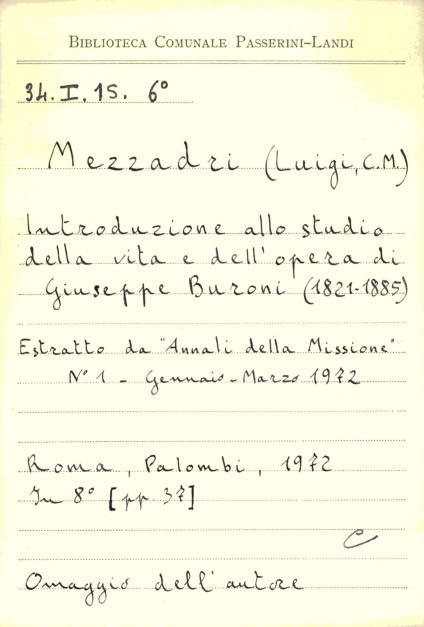 BIBLIOTECA COMUNALE PASSERINI-LANDI
34.I.15. 6°
Mezzadri (Luigi, C.M.)
Introduzione allo studio
della vita e dell'opera di
Giuseppe Buroni (1821-1885)
Estratto da "Annali della Missione"
N° 1 - Gennaio-Marzo 1972
Roma, Palombi, 1972
In 8° [pp 37]
C
Omaggio dell'autore